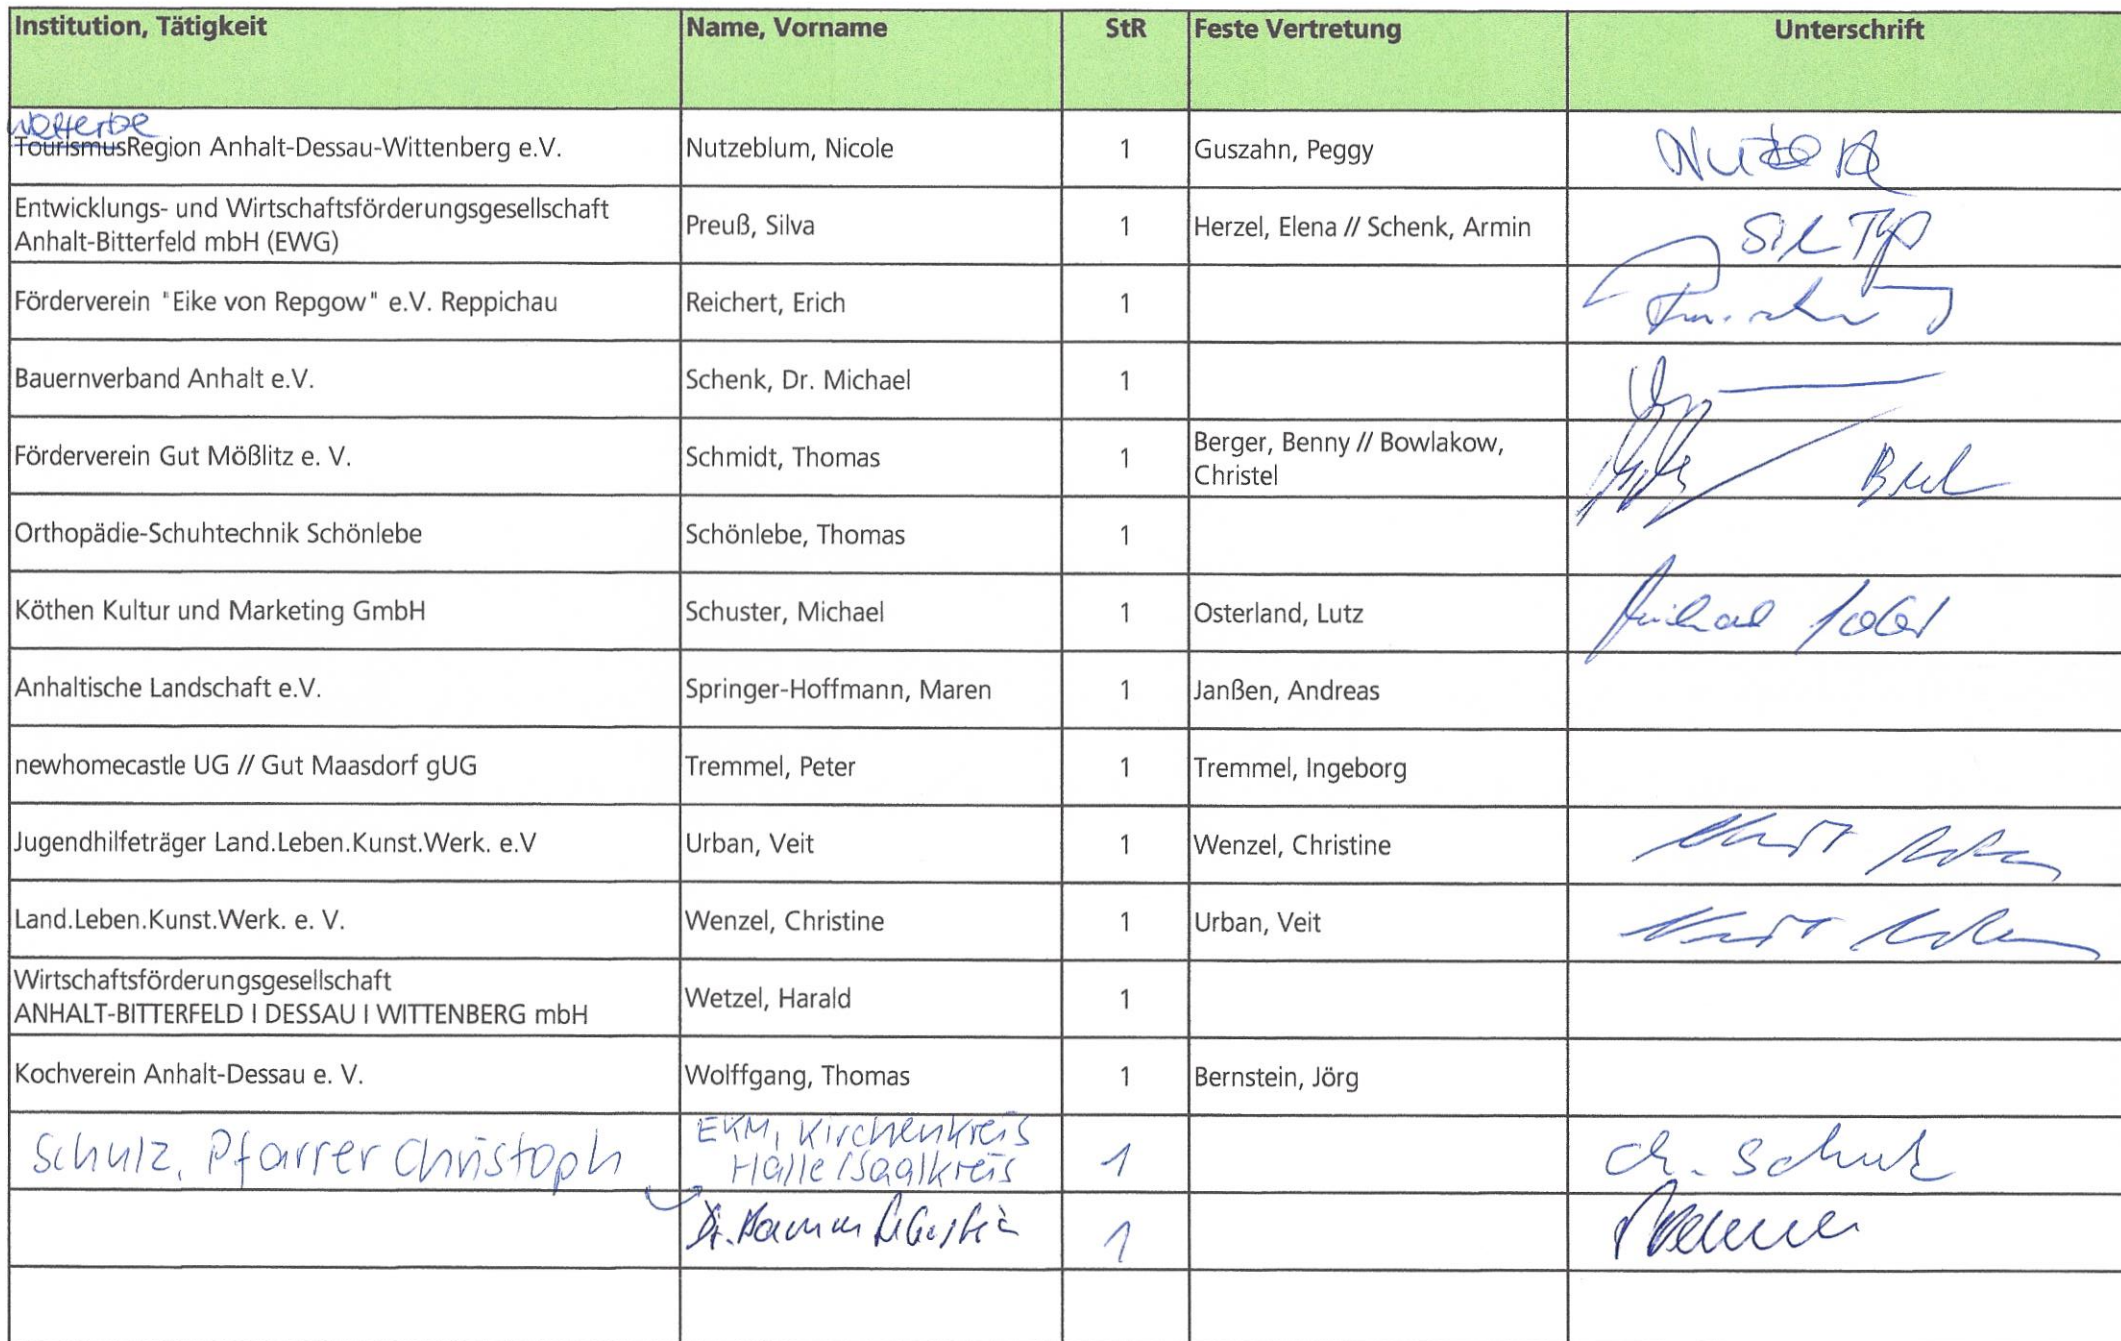 Institution, Tätigkeit Name, Vorname StR Feste Vertretung Unterschrift
Welterbe
TourismusRegion Anhalt-Dessau-Wittenberg e.V. Nutzeblum, Nicole 1 Guszahn, Peggy
Entwicklungs- und Wirtschaftsförderungsgesellschaft
Anhalt-Bitterfeld mbH (EWG) Preuß, Silva 1 Herzel, Elena // Schenk, Armin
Förderverein "Eike von Repgow" e.V. Reppichau Reichert, Erich 1
Bauernverband Anhalt e.V. Schenk, Dr. Michael 1
Förderverein Gut Mößlitz e. V. Schmidt, Thomas 1 Berger, Benny // Bowlakow,
Christel
Orthopädie-Schuhtechnik Schönlebe Schönlebe, Thomas 1
Köthen Kultur und Marketing GmbH Schuster, Michael 1 Osterland, Lutz Michael
Anhaltische Landschaft e.V. Springer-Hoffmann, Maren 1 Janßen, Andreas
newhomecastle UG // Gut Maasdorf gUG Tremmel, Peter 1 Tremmel, Ingeborg
Jugendhilfeträger Land.Leben.Kunst.Werk. e.V Urban, Veit 1 Wenzel, Christine
Land.Leben.Kunst.Werk. e. V. Wenzel, Christine 1 Urban, Veit
Wirtschaftsförderungsgesellschaft
ANHALT-BITTERFELD I DESSAU I WITTENBERG mbH Wetzel, Harald 1
Kochverein Anhalt-Dessau e. V. Wolffgang, Thomas 1 Bernstein, Jörg
Schulz, Pfarrer Christoph EKM, Kirchenkreis
Halle/Saalkreis 1 Ch. Schulz
Dr. 1